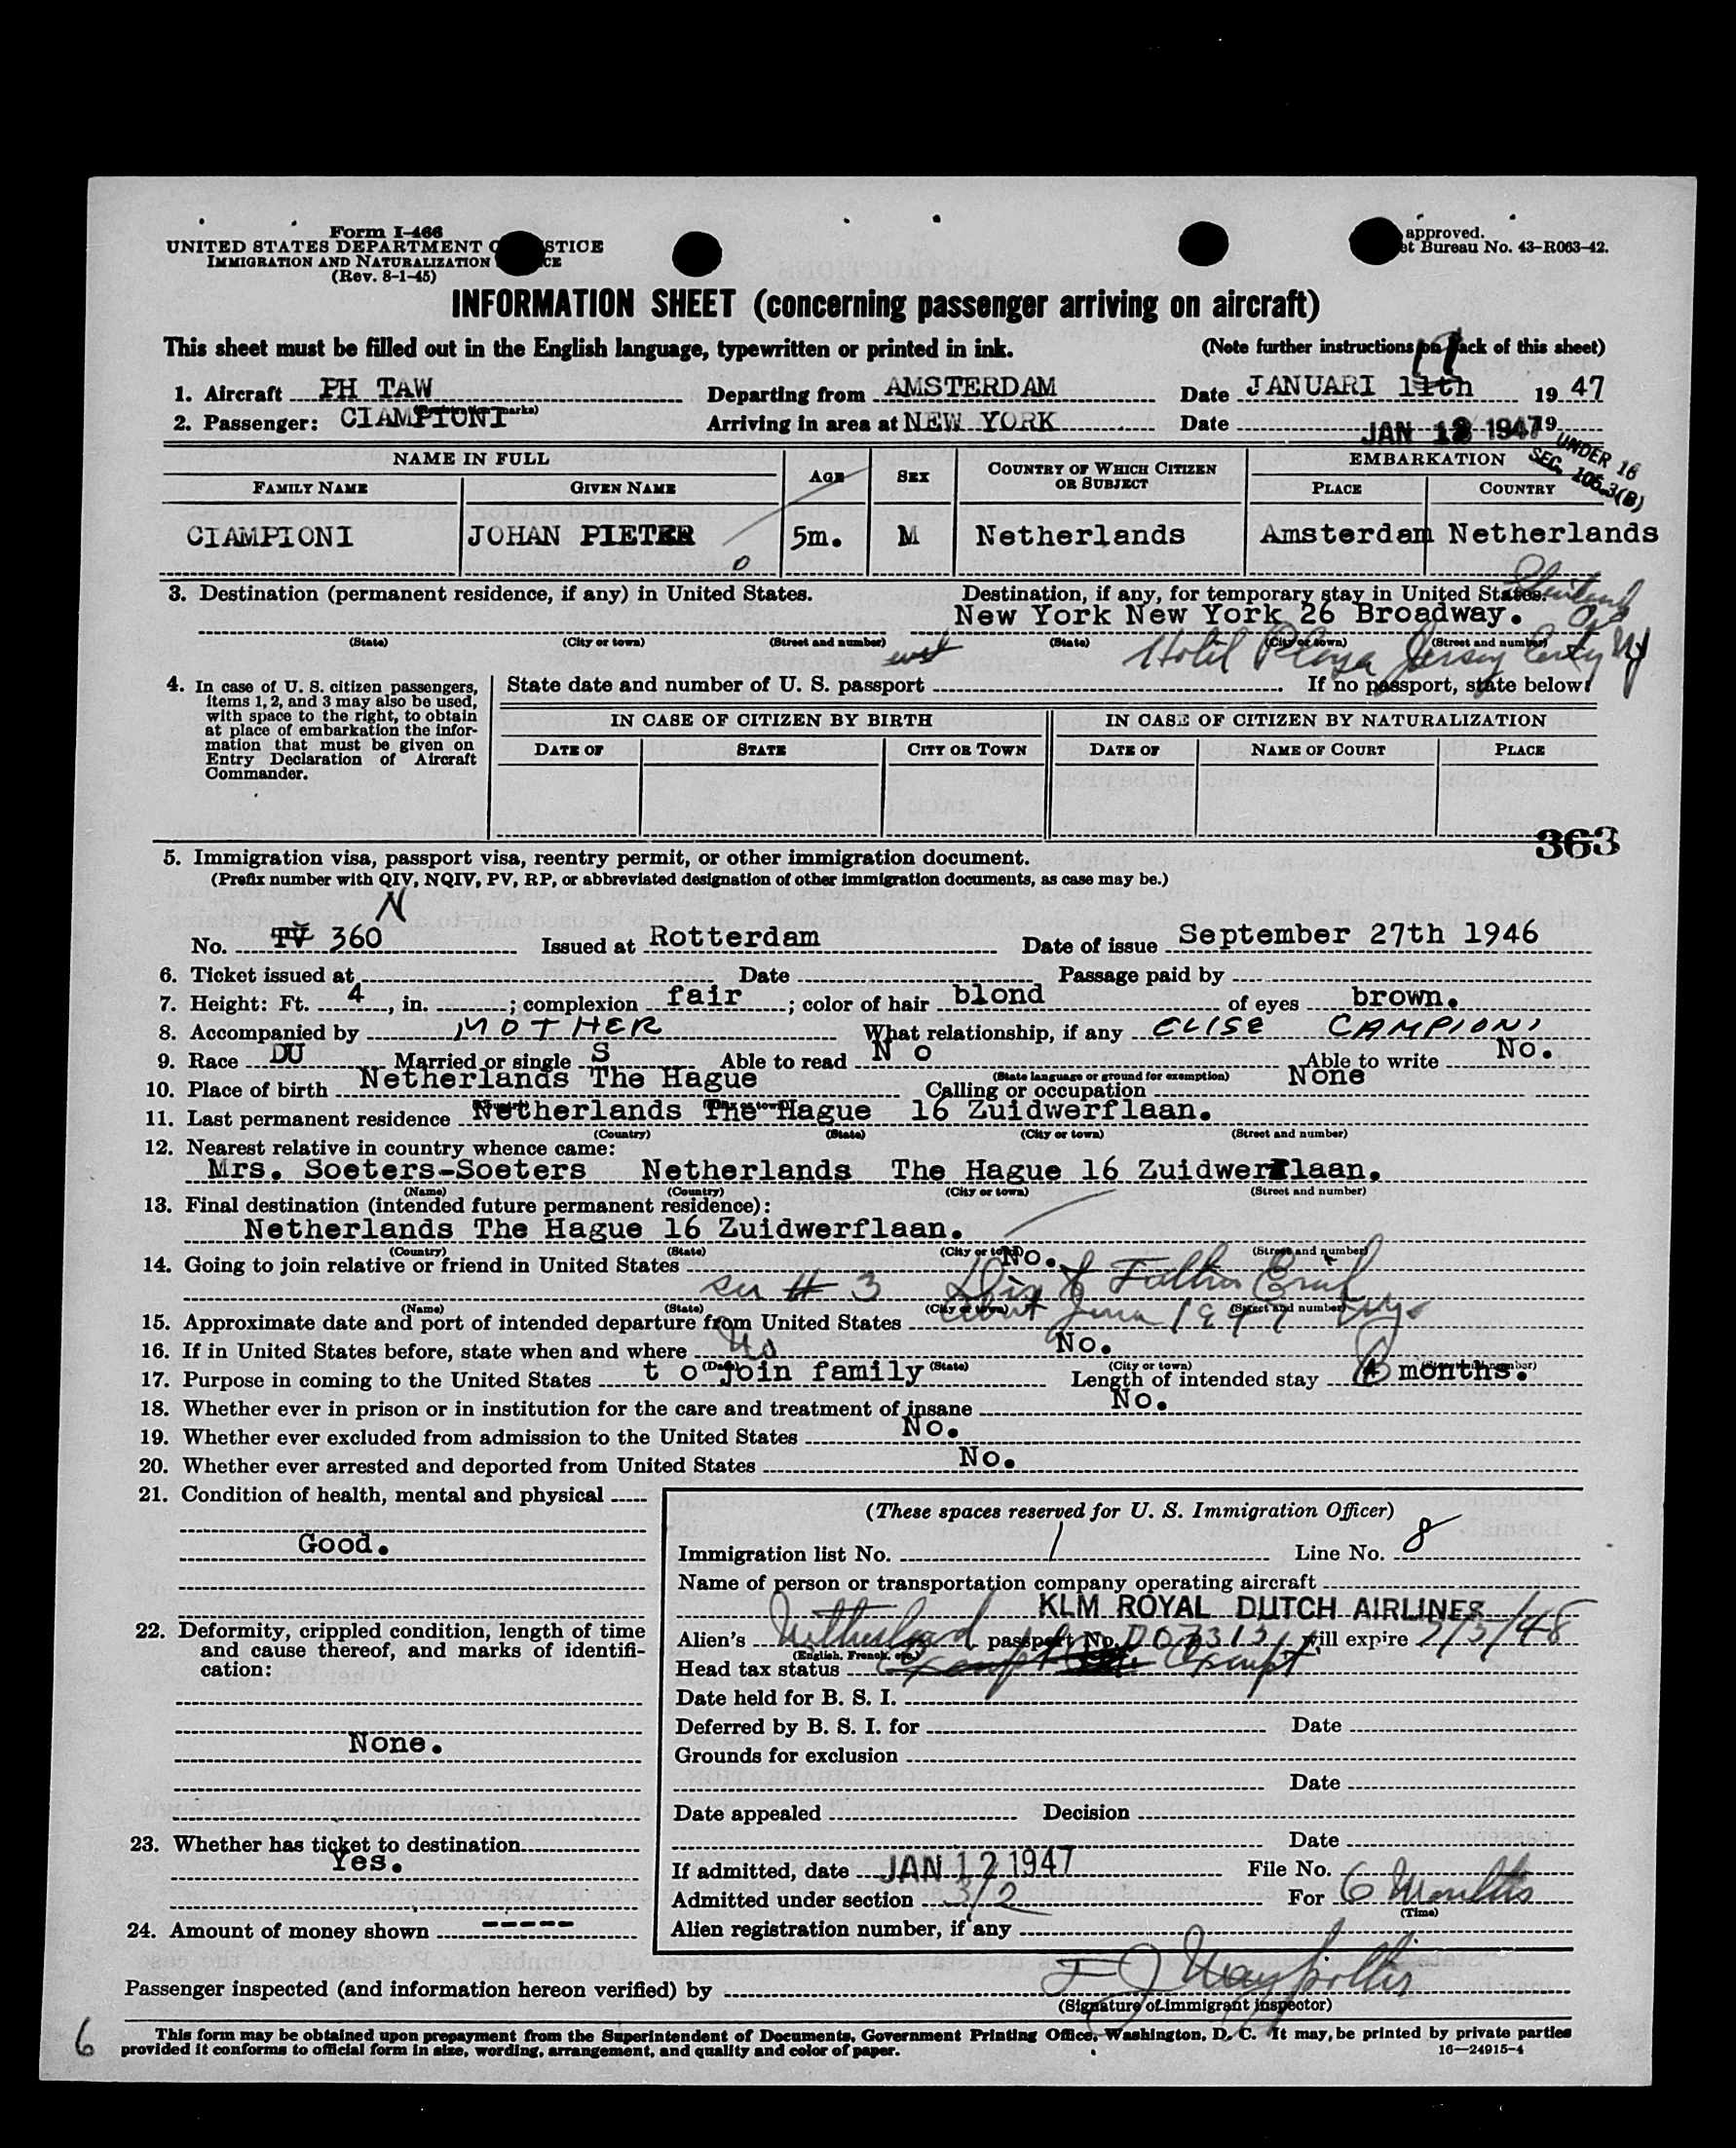 Form I-466
UNITED STATES DEPARTMENT O STICE
IMMIGRATION AND NATURALIZATION CE
(Rev. 8-1-45)
approved.
et Bureau No. 43-R063-42.
INFORMATION SHEET (concerning passenger arriving on aircraft)
This sheet must be filled out in the English language, typewritten or printed in ink. (Note further instructions on back of this sheet)
1. Aircraft PH TAW Departing from AMSTERDAM Date JANUARI 11th 1947
2. Passenger: CIAMPIONI Arriving in area at NEW YORK Date JAN 12 1947 19
UNDER 16
SEC. 105.3(B)
NAME IN FULL AGE SEX COUNTRY OF WHICH CITIZEN OR SUBJECT EMBARKATION
FAMILY NAME GIVEN NAME PLACE COUNTRY
CIAMPIONI JOHAN PIETER 5m. M Netherlands Amsterdam Netherlands
3. Destination (permanent residence, if any) in United States. Destination, if any, for temporary stay in United States.
New York New York 26 Broadway.
(State) (City or town) (Street and number) (State) (City or town) (Street and number)
Hotel Plaza Jersey City NJ
4. In case of U. S. citizen passengers, items 1, 2, and 3 may also be used, with space to the right, to obtain at place of embarkation the information that must be given on Entry Declaration of Aircraft Commander.
State date and number of U. S. passport If no passport, state below:
IN CASE OF CITIZEN BY BIRTH IN CASE OF CITIZEN BY NATURALIZATION
DATE OF STATE CITY OR TOWN DATE OF NAME OF COURT PLACE
363
5. Immigration visa, passport visa, reentry permit, or other immigration document.
(Prefix number with QIV, NQIV, PV, RP, or abbreviated designation of other immigration documents, as case may be.)
N
No. TV 360 Issued at Rotterdam Date of issue September 27th 1946
6. Ticket issued at Date Passage paid by
7. Height: Ft. 4, in. ; complexion fair ; color of hair blond of eyes brown.
8. Accompanied by MOTHER What relationship, if any ELISE CAMPIONI
9. Race DU Married or single S Able to read N o Able to write No.
(State language or ground for exemption)
10. Place of birth Netherlands The Hague Calling or occupation None
11. Last permanent residence Netherlands The Hague 16 Zuidwerflaan.
(Country) (State) (City or town) (Street and number)
12. Nearest relative in country whence came:
Mrs. Soeters-Soeters Netherlands The Hague 16 Zuidwerflaan.
(Name) (Country) (City or town) (Street and number)
13. Final destination (intended future permanent residence):
Netherlands The Hague 16 Zuidwerflaan.
(Country) (State) (City or town) (Street and number)
14. Going to join relative or friend in United States No.
see # 3 Father
(Name) (State) (City or town) (Street and number)
15. Approximate date and port of intended departure from United States June 1947
16. If in United States before, state when and where No No.
(Date) (State) (City or town) (Street and number)
17. Purpose in coming to the United States t o join family Length of intended stay months.
18. Whether ever in prison or in institution for the care and treatment of insane No.
19. Whether ever excluded from admission to the United States No.
20. Whether ever arrested and deported from United States No.
21. Condition of health, mental and physical
Good.
22. Deformity, crippled condition, length of time and cause thereof, and marks of identification:
None.
23. Whether has ticket to destination
Yes.
24. Amount of money shown -----
(These spaces reserved for U. S. Immigration Officer)
Immigration list No. 1 Line No. 8
Name of person or transportation company operating aircraft
KLM ROYAL DUTCH AIRLINES
Alien's Netherland passport No. D07313 will expire 7/5/48
(English, French, etc.)
Head tax status Exempt Exempt
Date held for B. S. I.
Deferred by B. S. I. for Date
Grounds for exclusion
Date
Date appealed Decision
Date
If admitted, date JAN 12 1947 File No.
Admitted under section 3/2 For 6 Months
(Time)
Alien registration number, if any
Passenger inspected (and information hereon verified) by
(Signature of immigrant inspector)
6
This form may be obtained upon prepayment from the Superintendent of Documents, Government Printing Office, Washington, D. C. It may be printed by private parties
provided it conforms to official form in size, wording, arrangement, and quality and color of paper. 16—24915-4